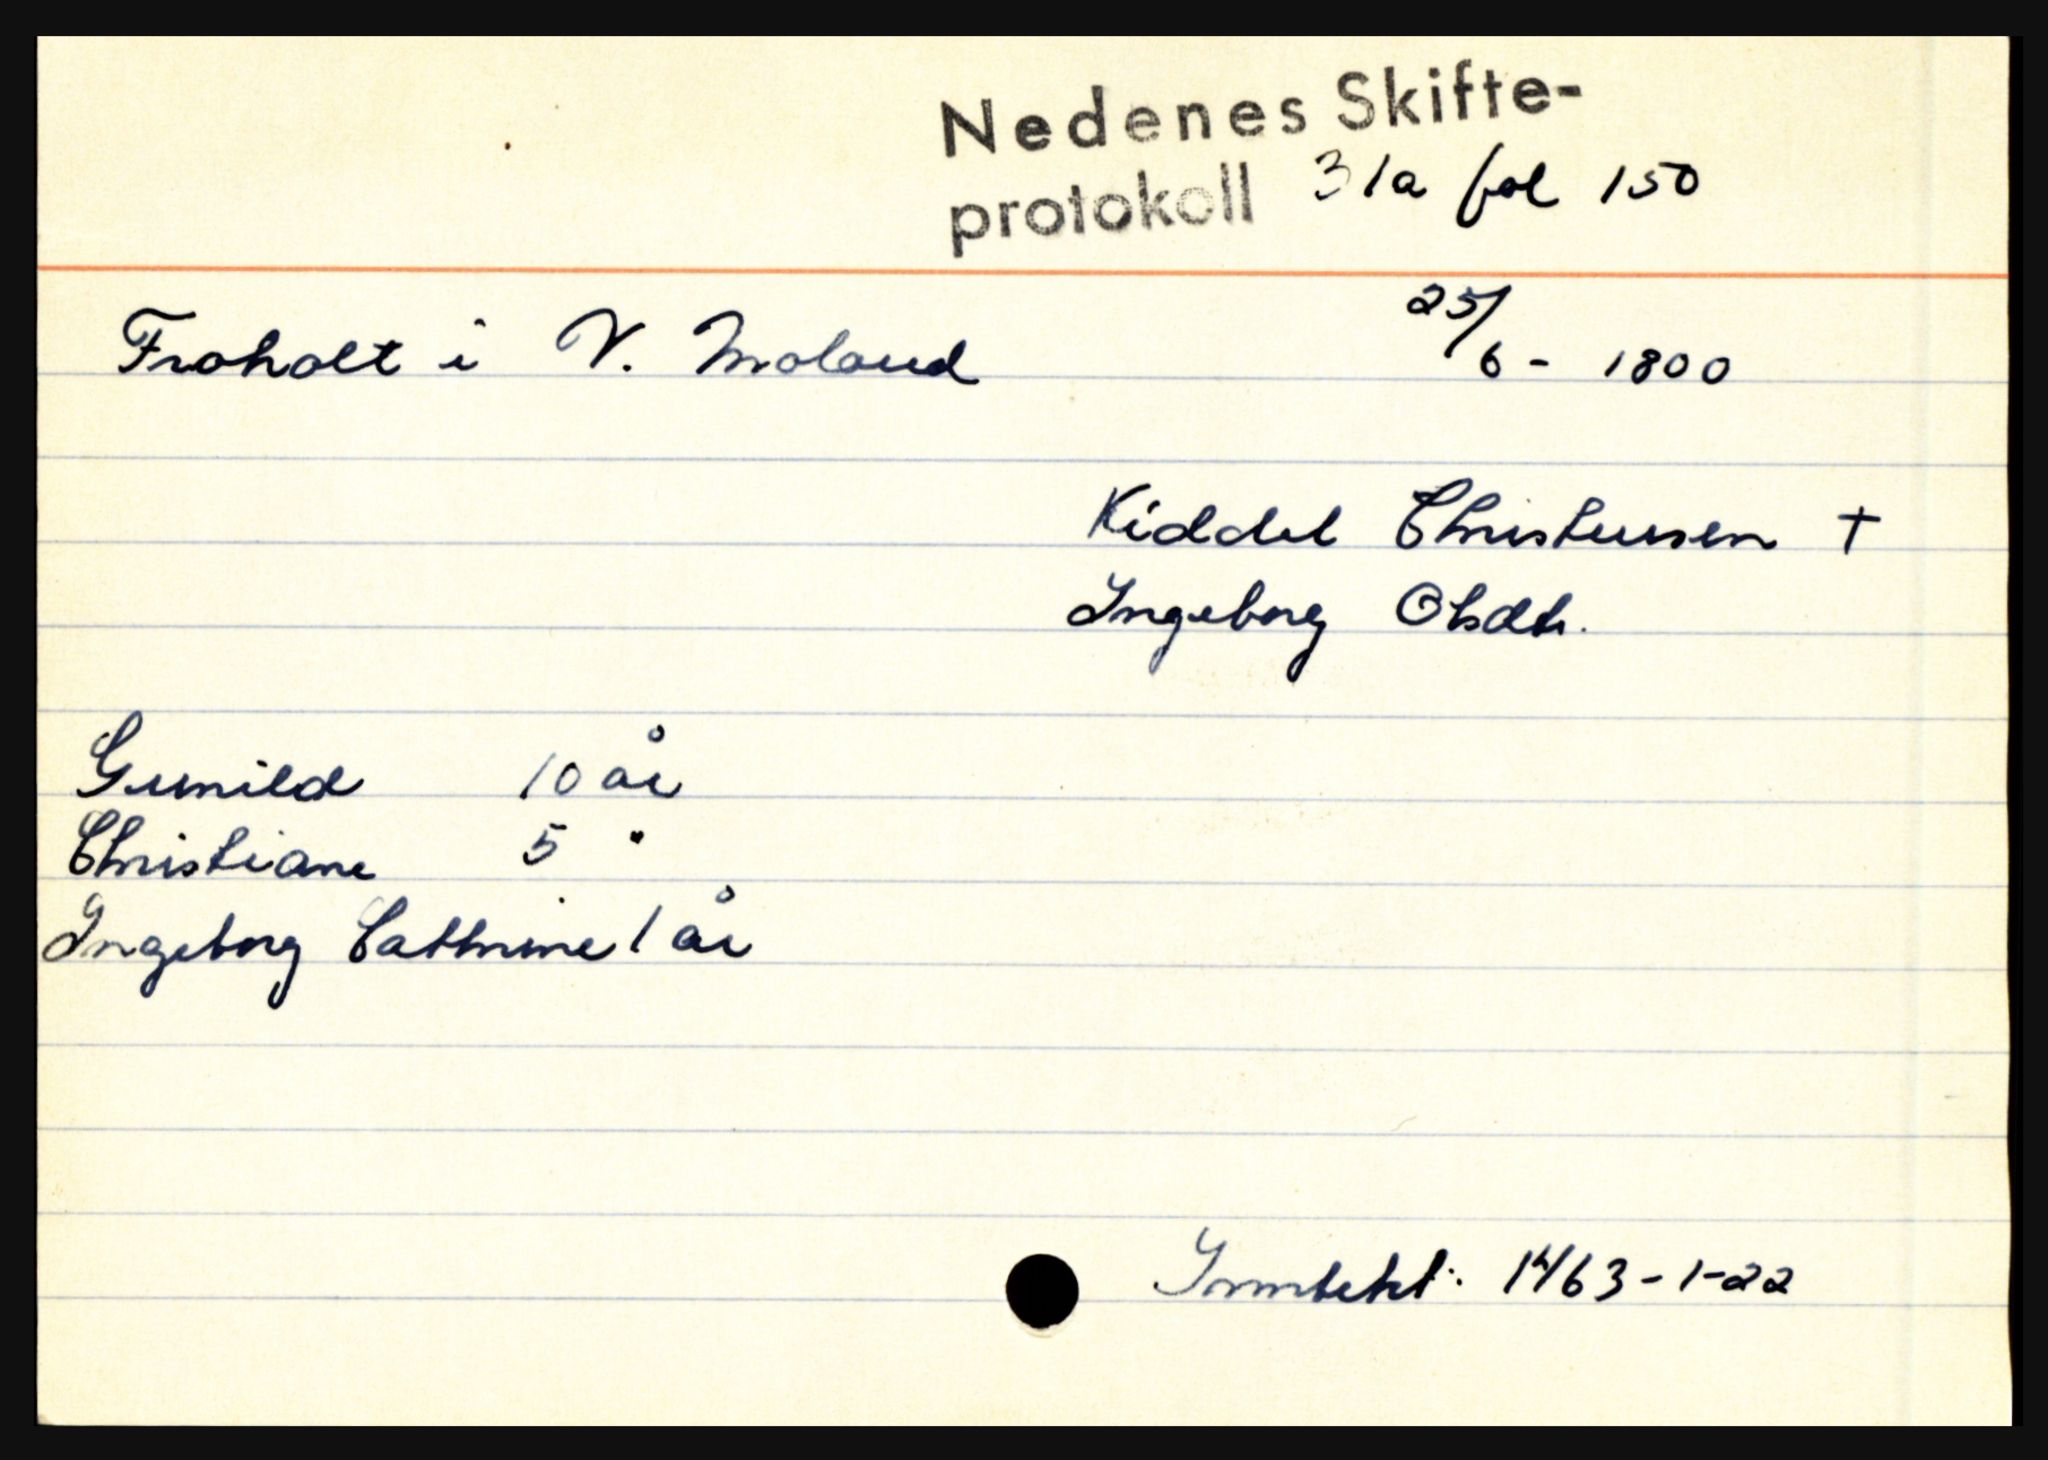 Nedenes Skifte-
protokoll 31a fol 150
Froholt i V. Moland 25/6 - 1800
Kiddel Christensen †
Ingeborg Olsdtr.
Gunild 10 år
Christiane 5 "
Ingeborg Cathrine 1 år
Inntekt: 1463-1-22